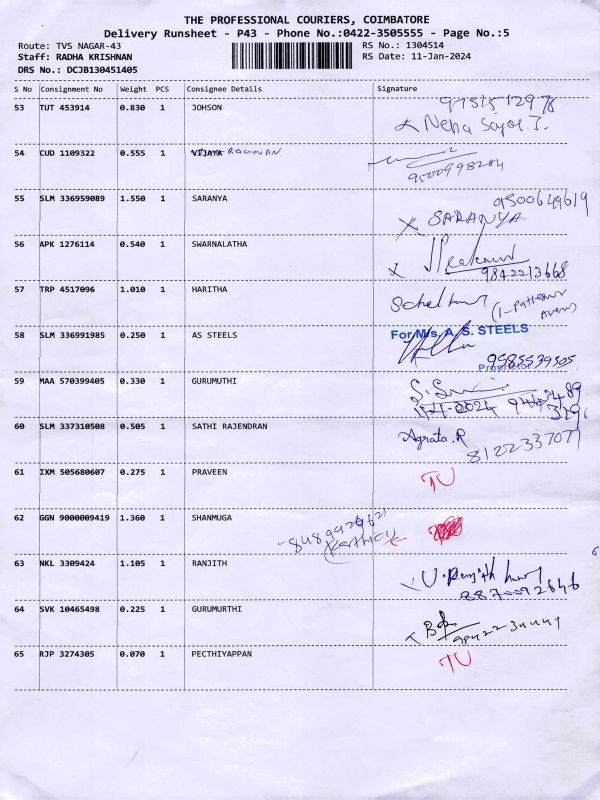 THE PROFESSIONAL COURIERS, COIMBATORE
Delivery Runsheet - P43 - Phone No.:0422-3505555 - Page No.:5
Route: TVS NAGAR-43 RS No.: 1304514
Staff: RADHA KRISHNAN RS Date: 11-Jan-2024
DRS No.: DCJB130451405
S No Consignment No Weight PCS Consignee Details Signature
53 TUT 453914 0.830 1 JOHSON
Neha
54 CUD 1109322 0.555 1 VIJAYA RAGHAVAN
9500998284
55 SLM 336959089 1.550 1 SARANYA 9500649619
X SARANYA
56 APK 1276114 0.540 1 SWARNALATHA
9842213668
57 TRP 4517096 1.010 1 HARITHA
58 SLM 336991985 0.250 1 AS STEELS For M/s. A. S. STEELS
9585539505
Proprietor
59 MAA 570399405 0.330 1 GURUMUTHI
60 SLM 337310508 0.505 1 SATHI RAJENDRAN Agrata.R
8122337077
61 IXM 505680607 0.275 1 PRAVEEN TU
62 GGN 9000009419 1.360 1 SHANMUGA
63 NKL 3309424 1.105 1 RANJITH
8870092646
64 SVK 10465498 0.225 1 GURUMURTHI
65 RJP 3274305 0.070 1 PECTHIYAPPAN TU